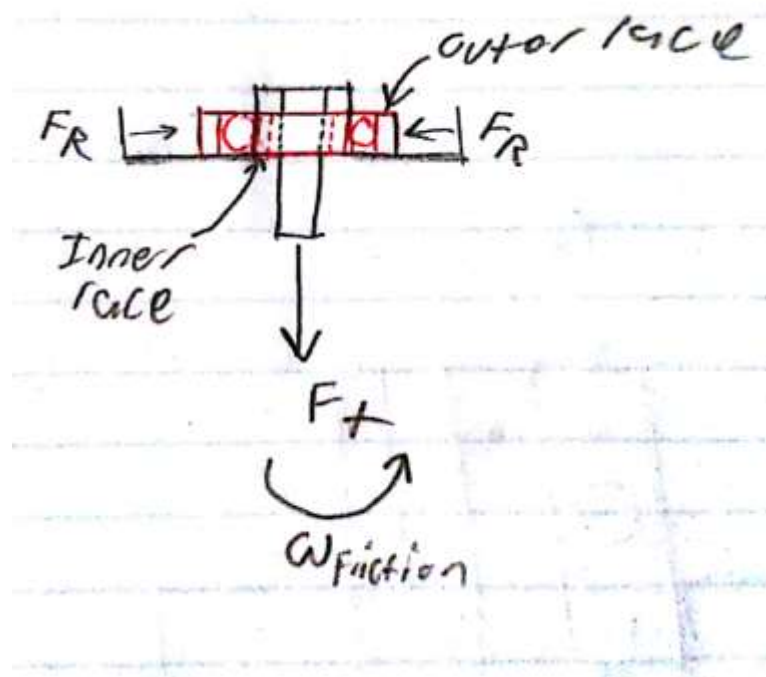 outer race
F_R
F_R
Inner
race
F_t
ω_Friction